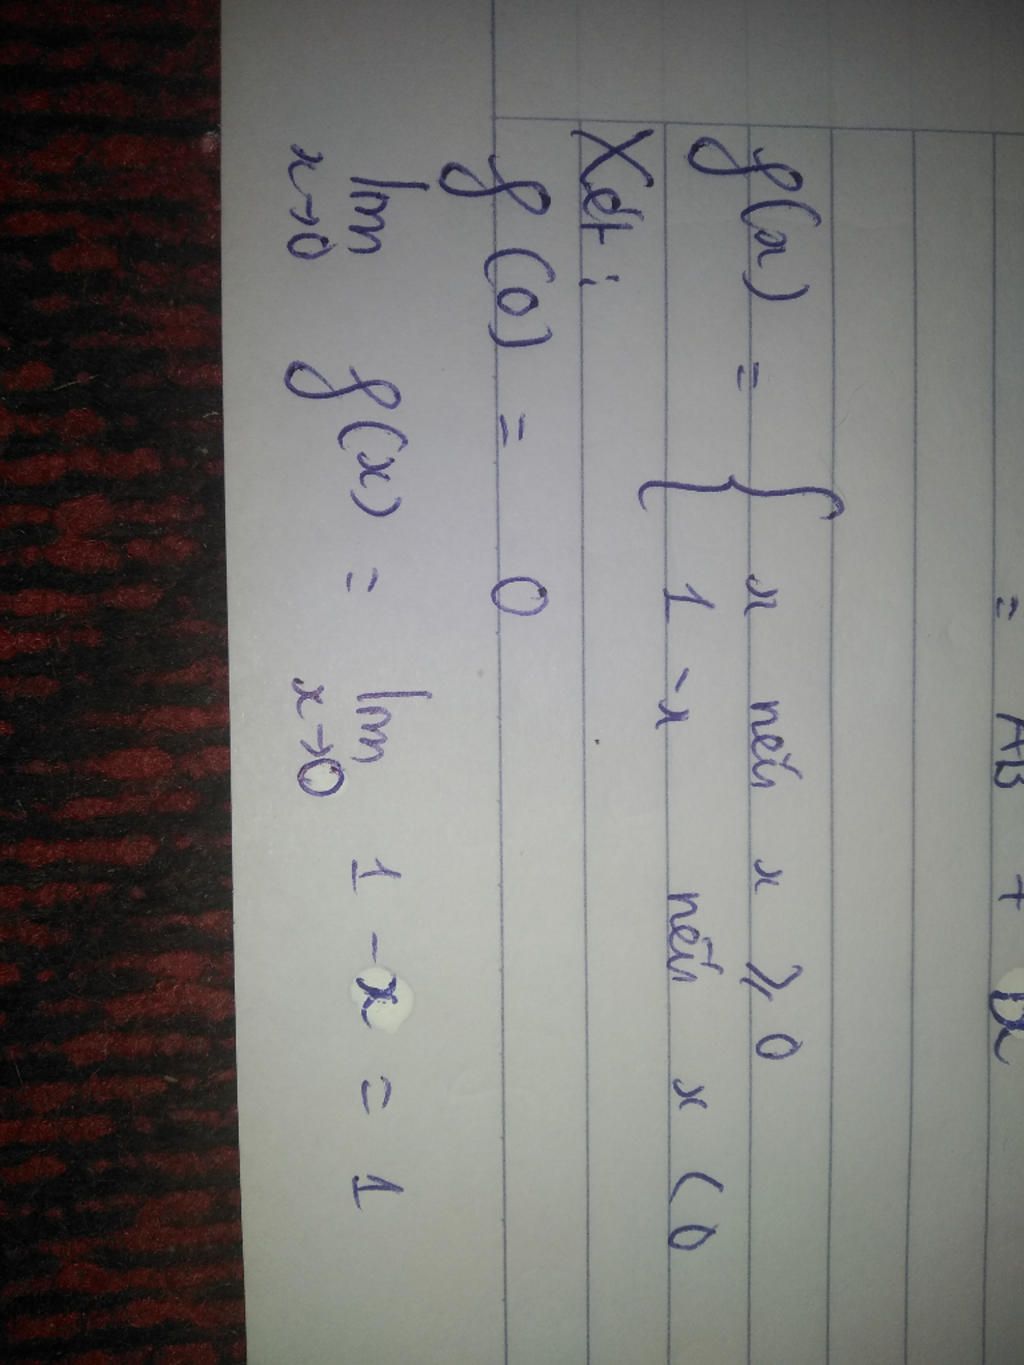 = AB + BC
f(x) = { x nếu x ⩾ 0
1 - x nếu x < 0
Xét :
f(0) = 0
lim f(x) = lim 1 - x = 1
x→0 x→0